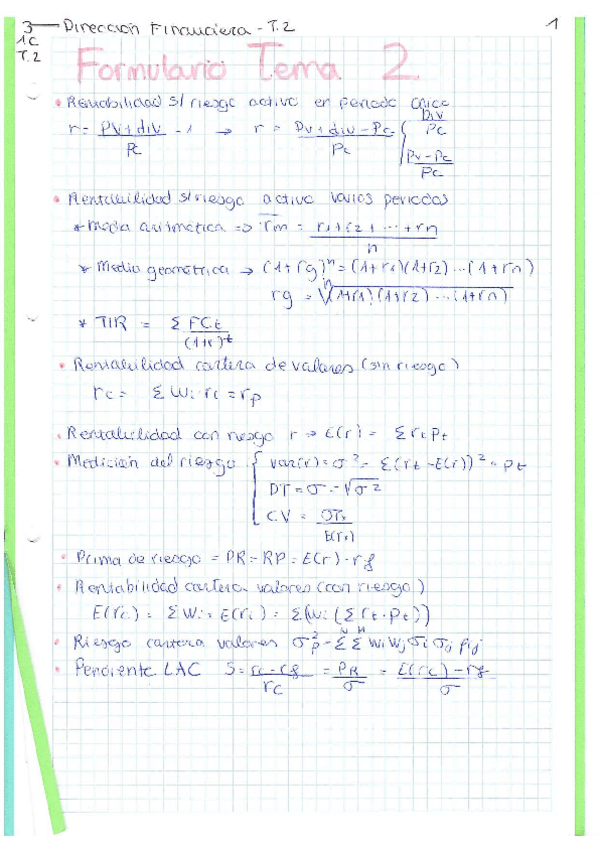 3 — Dirección Financiera - T.2 1
1C
T.2
Formulario Tema 2
• Rentabilidad s/ riesgo activo en periodo único
r = Pv + div / Pc - 1 → r = Pv + div - Pc / Pc { Div / Pc
Pv - Pc / Pc
• Rentabilidad s/ riesgo activo varios periodos
* Media aritmética => r̅m = r1 + r2 + ... + rn / n
* Media geométrica → (1 + rg)ⁿ = (1 + r1)(1 + r2) ... (1 + rn)
rg = ⁿ√(1+r1)(1+r2) ... (1+rn)
* TIR = Σ FCt / (1+r)^t
• Rentabilidad cartera de valores (sin riesgo)
rc = Σ Wi · ri = rp
• Rentabilidad con riesgo r → E(r) = Σ rt pt
• Medición del riesgo { var(r) = σ² = Σ (rt - E(r))² · pt
DT = σ = √σ²
CV = / E(ri)
• Prima de riesgo = PR = RP = E(r) - rf
• Rentabilidad cartera valores (con riesgo)
E(rc) = Σ Wi · E(ri) = Σ(Wi (Σ rt · pt))
• Riesgo cartera valores σp² = Σ Σ Wi Wj σi σj ρij
• Pendiente LAC S = rc - rf / rc = PR / σ = E(rc) - rf / σ